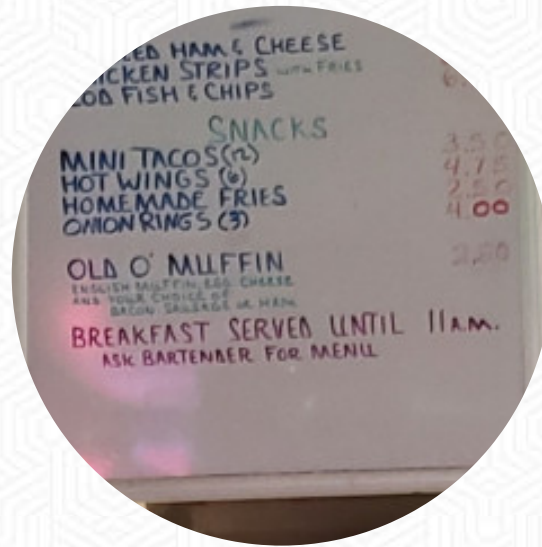 HAM & CHEESE
STRIPS WITH FRIES
FISH & CHIPS
SNACKS
MINI TACOS (12) 3.50
HOT WINGS (6) 4.75
HOMEMADE FRIES 2.50
ONION RINGS (3) 4.00
OLD O' MUFFIN
ENGLISH MUFFIN, EGG, CHEESE
AND YOUR CHOICE OF
BACON, SAUSAGE OR HAM
BREAKFAST SERVED UNTIL 11 A.M.
ASK BARTENDER FOR MENU